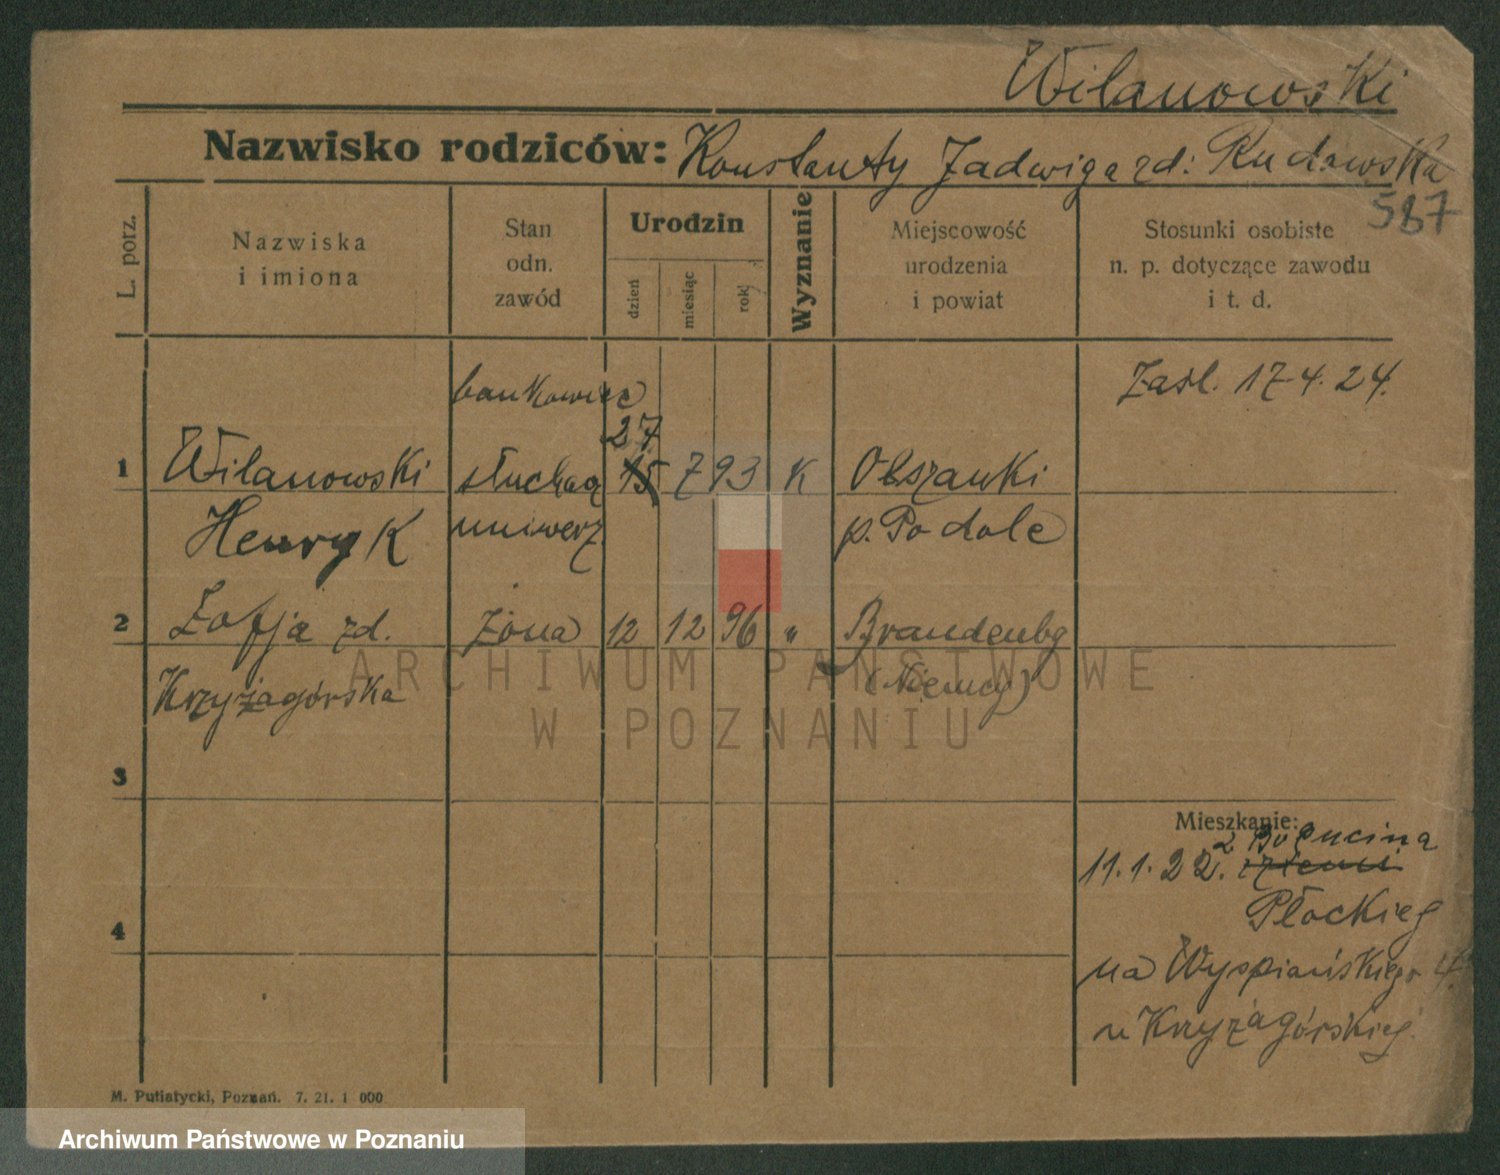 Wilanowski
Nazwisko rodziców: Konstanty Jadwiga zd: Rudowska
587
L. porz.
Nazwiska
i imiona
Stan
odn.
zawód
Urodzin
dzień
miesiąc
rok
Wyznanie
Miejscowość
urodzenia
i powiat
Stosunki osobiste
n. p. dotyczące zawodu
i t. d.
bankowiec
Zaśl. 17.4.24.
27
1 Wilanowski słuchacz 15 7 93 K Olszanki
Henryk uniwerz. p. Podole
2 Zofja zd. żona 12 12 96 " Brandenbg
Krzyżagórska (Niemcy)
3
4
Mieszkanie:
z
11.1.22.
Płockiej
na Wyspiańskiego 4.
u Krzyżagórskiej
M. Putiatycki, Poznań. 7. 21. 1 000
ARCHIWUM PAŃSTWOWE
W POZNANIU
Archiwum Państwowe w Poznaniu